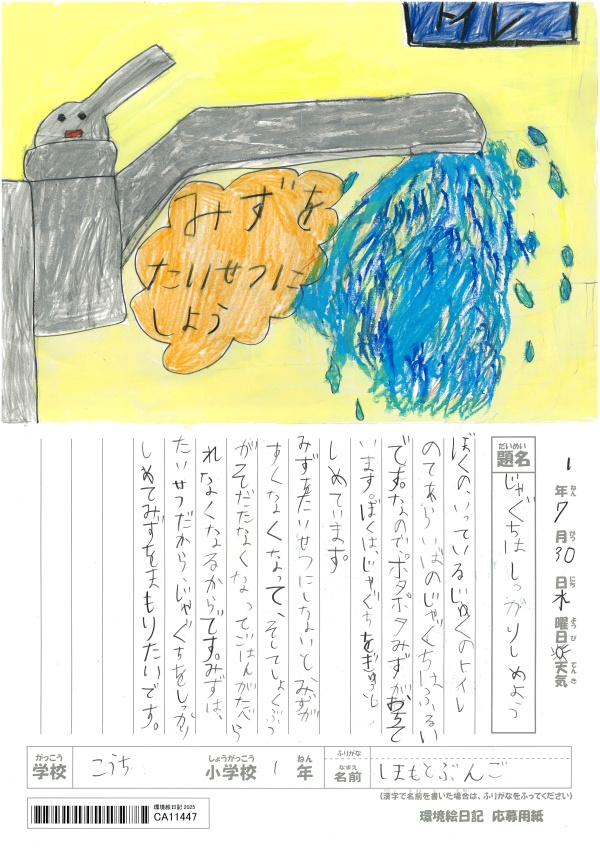 トイレ
みずを
たいせつに
しよう
1年7月30日水曜日天気
ねん がつ にち ようび てんき
だいめい
題名
じゃぐちはしっかりしめよう
ぼくの、いっているじゅくのトイレ
のてあらいばのじゃぐちは、ふるい
です。なので、ポタポタみずがおちて
います。ぼくは、じゃぐちをぎゅっと
しめています。
みずをたいせつにしないと、みずが
すくなくなって、そしてしょくぶつ
がそだたなくなってごはんがたべら
れなくなるからです。みずは、
たいせつだから、じゃぐちをしっかり
しめてみずをまもりたいです。
がっこう しょうがっこう ねん ふりがな
学校 こうち 小学校 1年
なまえ
名前 しまもとぶんご
(漢字で名前を書いた場合は、ふりがなをふってください)
環境絵日記 2025
CA11447
環境絵日記 応募用紙